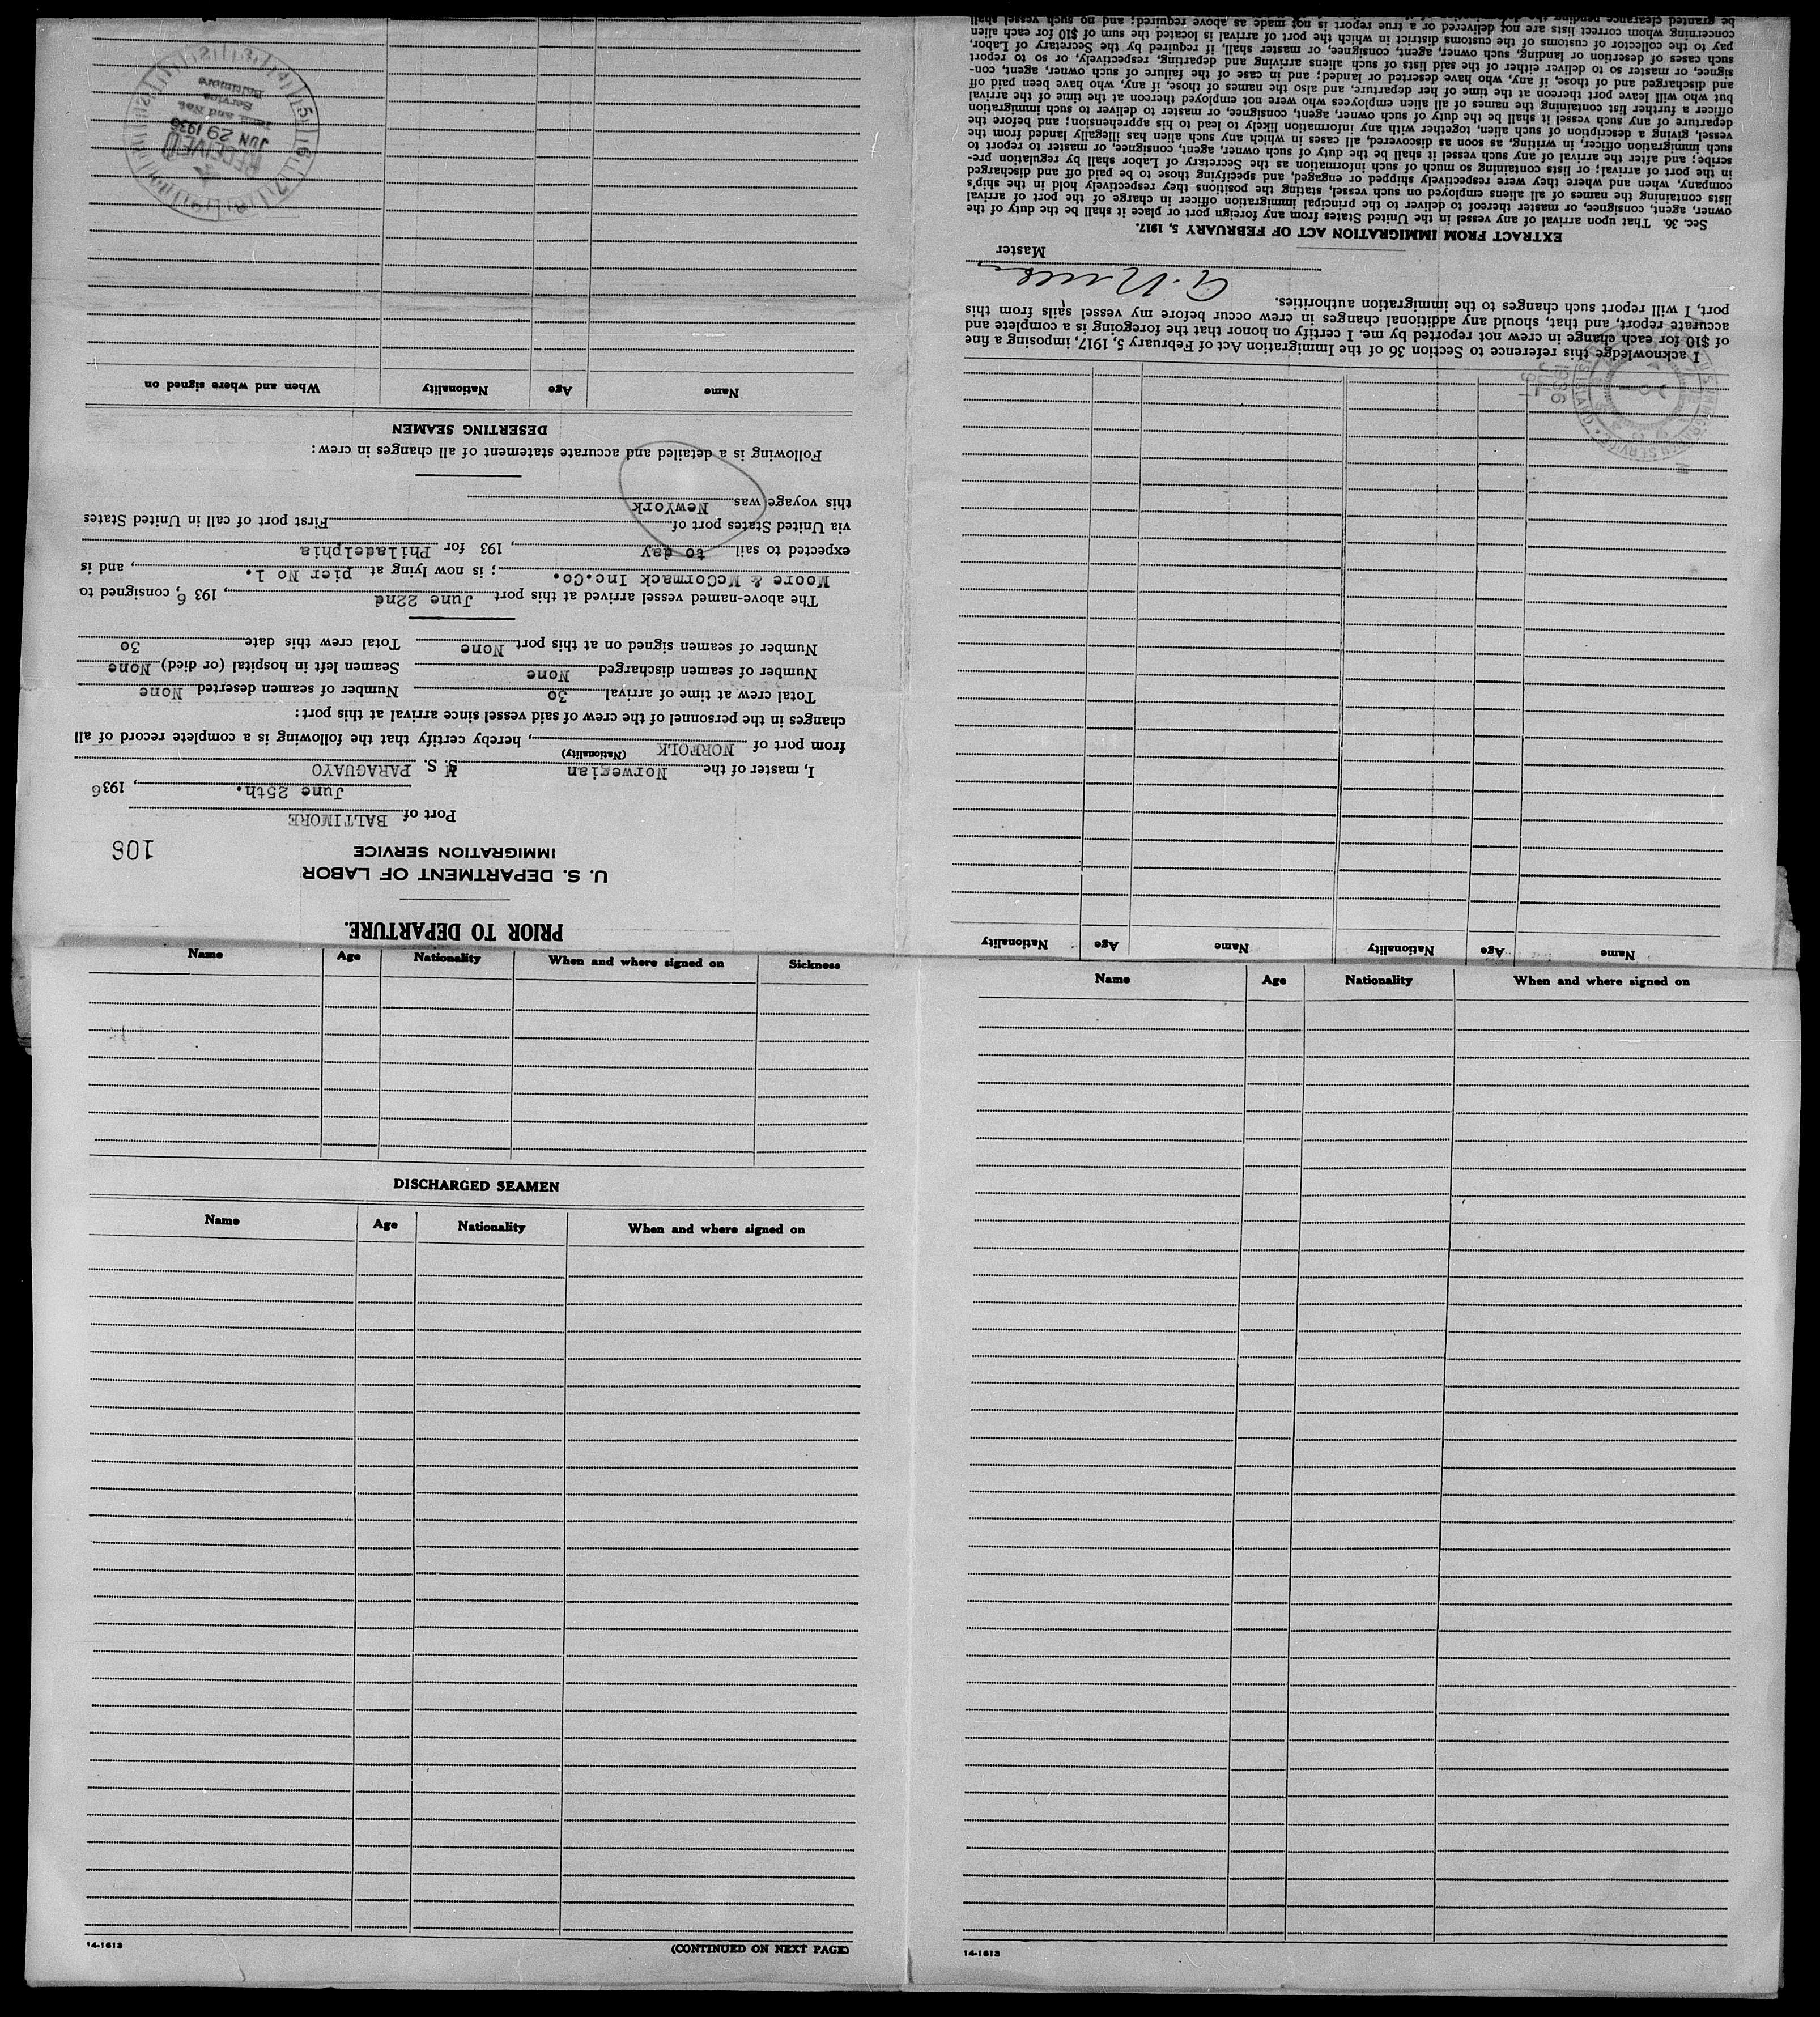 PRIOR TO DEPARTURE.
U. S. DEPARTMENT OF LABOR
IMMIGRATION SERVICE
108
Port of BALTIMORE
June 25th. , 1936
I, master of the Norwegian S. S. PARAGUAYO
(Nationality)
from port of NORFOLK , hereby certify that the following is a complete record of all
changes in the personnel of the crew of said vessel since arrival at this port:
Total crew at time of arrival 30 Number of seamen deserted None
Number of seamen discharged None Seamen left in hospital (or died) None
Number of seamen signed on at this port None Total crew this date 30
The above-named vessel arrived at this port June 22nd , 193 6, consigned to
Moore & McCormack Inc.Co. ; is now lying at pier No 1. , and is
expected to sail to day , 193 for Philadelphia
via United States port of First port of call in United States
this voyage was NewYork
Following is a detailed and accurate statement of all changes in crew:
DESERTING SEAMEN
Name Age Nationality When and where signed on
RECEIVED
JUN 29 1936
Imm and Nat
Service
Baltimore
Name Age Nationality Name Age Nationality
I acknowledge this reference to Section 36 of the Immigration Act of February 5, 1917, imposing a fine
of $10 for each change in crew not reported by me. I certify on honor that the foregoing is a complete and
accurate report, and that, should any additional changes in crew occur before my vessel sails from this
port, I will report such changes to the immigration authorities.
Master
EXTRACT FROM IMMIGRATION ACT OF FEBRUARY 5, 1917.
Sec. 36. That upon arrival of any vessel in the United States from any foreign port or place it shall be the duty of the
owner, agent, consignee, or master thereof to deliver to the principal immigration officer in charge of the port of arrival
lists containing the names of all aliens employed on such vessel, stating the positions they respectively hold in the ship's
company, when and where they were respectively shipped or engaged, and specifying those to be paid off and discharged
in the port of arrival; or lists containing so much of such information as the Secretary of Labor shall by regulation pre-
scribe; and after the arrival of any such vessel it shall be the duty of such owner, agent, consignee, or master to report to
such immigration officer, in writing, as soon as discovered, all cases in which any such alien has illegally landed from the
vessel, giving a description of such alien, together with any information likely to lead to his apprehension; and before the
departure of any such vessel it shall be the duty of such owner, agent, consignee, or master to deliver to such immigration
officer a further list containing the names of all alien employees who were not employed thereon at the time of the arrival
but who will leave port thereon at the time of her departure, and also the names of those, if any, who have been paid off
and discharged and of those, if any, who have deserted or landed; and in case of the failure of such owner, agent, con-
signee, or master so to deliver either of the said lists of such aliens arriving and departing, respectively, or so to report
such cases of desertion or landing, such owner, agent, consignee, or master shall, if required by the Secretary of Labor,
pay to the collector of customs of the customs district in which the port of arrival is located the sum of $10 for each alien
concerning whom correct lists are not delivered or a true report is not made as above required; and no such vessel shall
be granted clearance pending the determination of
Name Age Nationality When and where signed on Sickness
DISCHARGED SEAMEN
Name Age Nationality When and where signed on
14-1613
(CONTINUED ON NEXT PAGE)
Name Age Nationality When and where signed on
14-1613